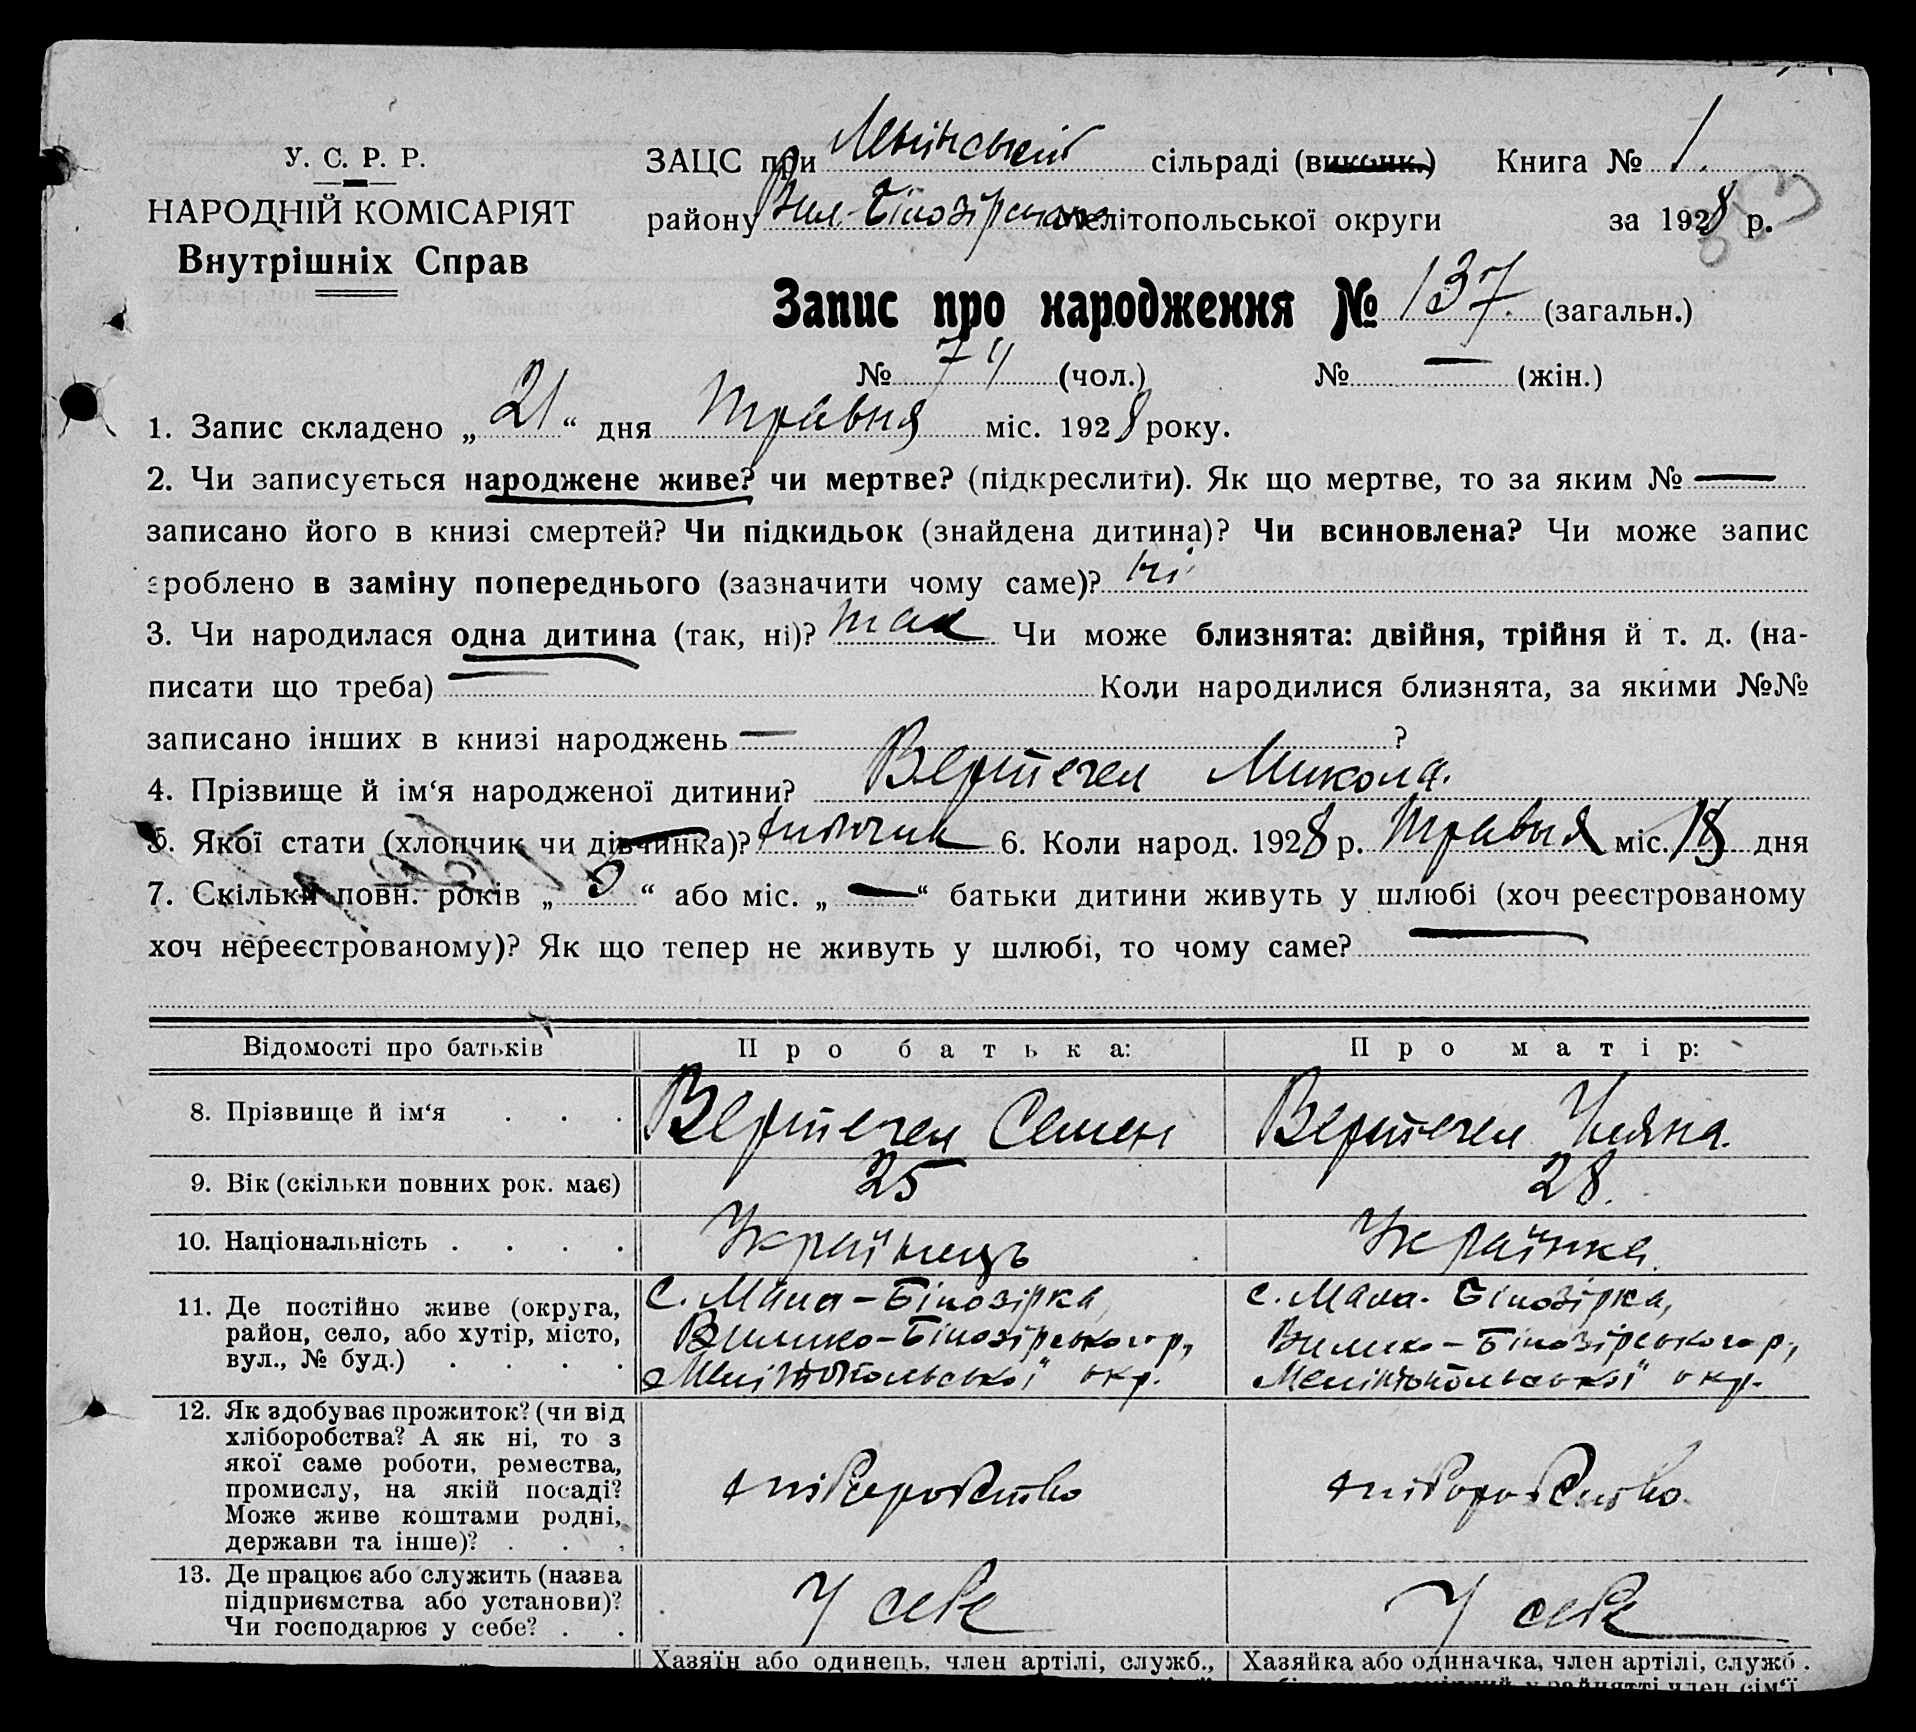 У. С. Р. Р.
НАРОДНІЙ КОМІСАРІЯТ
Внутрішніх Справ
ЗАЦС при Ленінський сільраді (виконк.) Книга № 1.
району Вел-Білозірського Мелітопольської округи за 1928 р.
Запис про народження № 137. (загальн.)
№ 74 (чол.) № — (жін.)
1. Запис складено „ 21 “ дня травня міс. 1928 року.
2. Чи записується народжене живе? чи мертве? (підкреслити). Як що мертве, то за яким № —
записано його в книзі смертей? Чи підкидьок (знайдена дитина)? Чи всиновлена? Чи може запис
зроблено в заміну попереднього (зазначити чому саме)? ні
3. Чи народилася одна дитина (так, ні)? так Чи може близнята: двійня, трійня й т. д. (на-
писати що треба) — Коли народилися близнята, за якими №№
записано інших в книзі народжень — ?
4. Прізвище й ім‘я народженої дитини? Вертегел Микола.
5. Якої стати (хлопчик чи дівчинка)? хлопчик 6. Коли народ. 1928 р. Травня міс. 18 дня
7. Скільки повн. років „ 5 “ або міс. „ — “ батьки дитини живуть у шлюбі (хоч реєстрованому
хоч нереєстрованому)? Як що тепер не живуть у шлюбі, то чому саме? —
Відомості про батьків Про батька: Про матір:
8. Прізвище й ім‘я . . . Вертегел Семен Вертегел Уляна.
9. Вік (скільки повних рок. має) 25 28.
10. Національність . . . . Українець Українка.
11. Де постійно живе (округа,
район, село, або хутір, місто,
вул., № буд.) . . . .
с. Мала-Білозірка,
Велико-Білозірського р,
Мелітопольської окр.
с. Мала-Білозірка,
Велико-Білозірського р,
Мелітопольської окр.
12. Як здобуває прожиток? (чи від
хліборобства? А як ні, то з
якої саме роботи, ремества,
промислу, на якій посаді?
Може живе коштами родні,
держави та інше)? . . .
хліборобство
хліборобство.
13. Де працює або служить (назва
підприємства або установи)?
Чи господарює у себе? . .
У себе
У себе
Хазяїн або одинець, член артілі, служб., Хазяйка або одиначка, член артілі, служб.